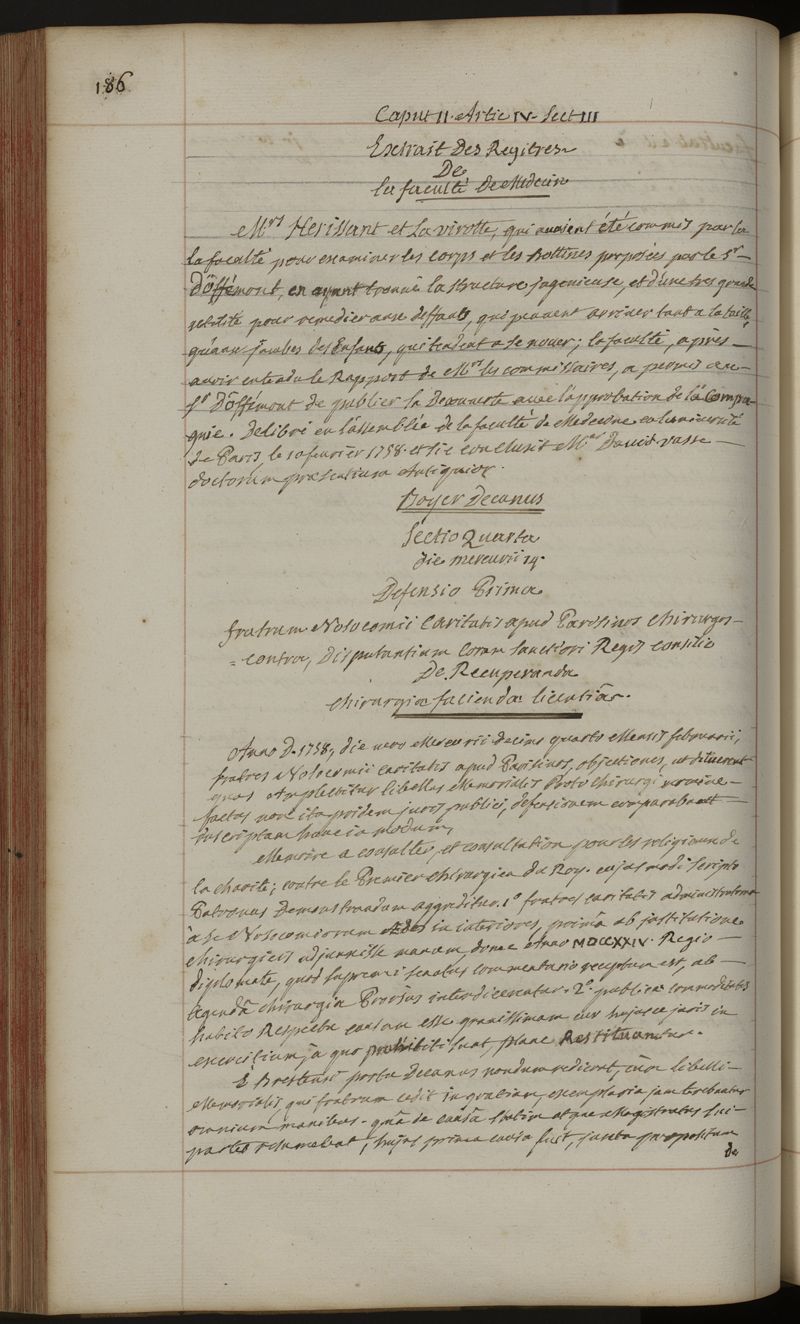 186
Caput II. Artic IV. Sect III
Extrait Des Regitres
De
la faculté De Medecin
Mrs Herissant et Lavirotte, qui avoient été commis par la
la faculté pour examiner les corps et les Bottines proposées par le Sr
D'offémont, en ayant trouvé la structure ingenieuse, et d'une tres grande
utilité pour remedier aux deffauts, qui peuvent arriver tant a la taille,
qu'aux jambes des Enfants, qui tendent a se nouer; la faculté, après
avoir entendu le Rapport de Mrs les commissaires, a permis au
Sr D'offémont de publier sa Decouverte avec l'approbation de la Compa-
gnie. Deliberé en l'assemblée de la faculté de Medecine en l'université
de Paris, le 10 fevrier 1758. et sic conclusit Mer David vasse
doctorum præsentium Antiquior.
Boyer Decanus
Sectio Quarta
die mercurii 14.
Defensio Prima
fratrum Nosocomii Caritatis apud Parisinos Chirurgos
contra, Disputantium Coram Sanctiori Regis Consilio
De Recuperanda
Chirurgiæ faciendæ licentiâ.
Anno D. 1758, die vero Mercurii decimo quarto Mensis februarii,
fratres Nosocomii caritatis apud Parisinos, objectiones, ut diluerent
quas Amplectitur libellus Memorialis Proto Chirurgi
factas non ita pridem juris publici, defensionem comparabant
inscriptam hunc in modum,
Memoire a consulter, et consultation pour les religieux de
la charité; contre le Premier chirurgien du Roy. cujusmodi scripto
Patronus Demonstrandum aggreditur. 1º fratres caritatis administrationi
à se Nosocomiorum Ædes in interiores, primâ ab institutione
chirurgicis adjunxisse manum, donec Anno MDCCXXIV. Regio
diplomate, quod supremi senatus commentario receptum est, ab
Agendâ chirurgiâ Prorsus interdicerentur. 2º publicæ commoditatis
habito Respectu causam esse gravissimam cur hujusce juris in
exercitium, a quo prohibiti sunt, plane Restituantur.
È Brestensi portu Decanus nondum redierat, cùm libelli
Memorialis, qui fratrum cedit in gratiam, exemplaria jam terebantur
omnium manibus. quâ de causâ statim atque Magistratus sui
partes resumebat, hujus prima cura fuit, juxta propositum
de